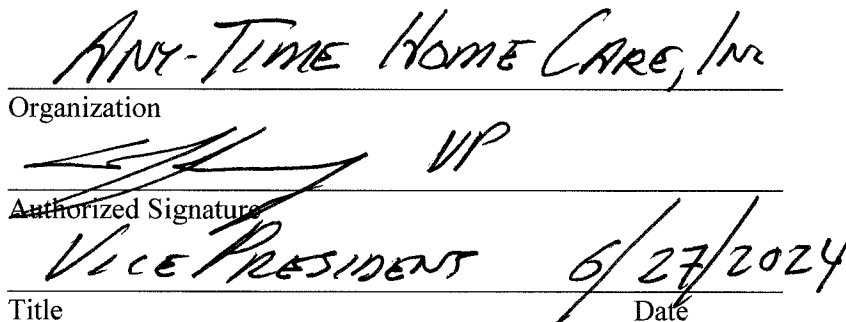 Any-Time Home Care, Inc
Organization
VP
Authorized Signature
Vice President 6/27/2024
Title Date